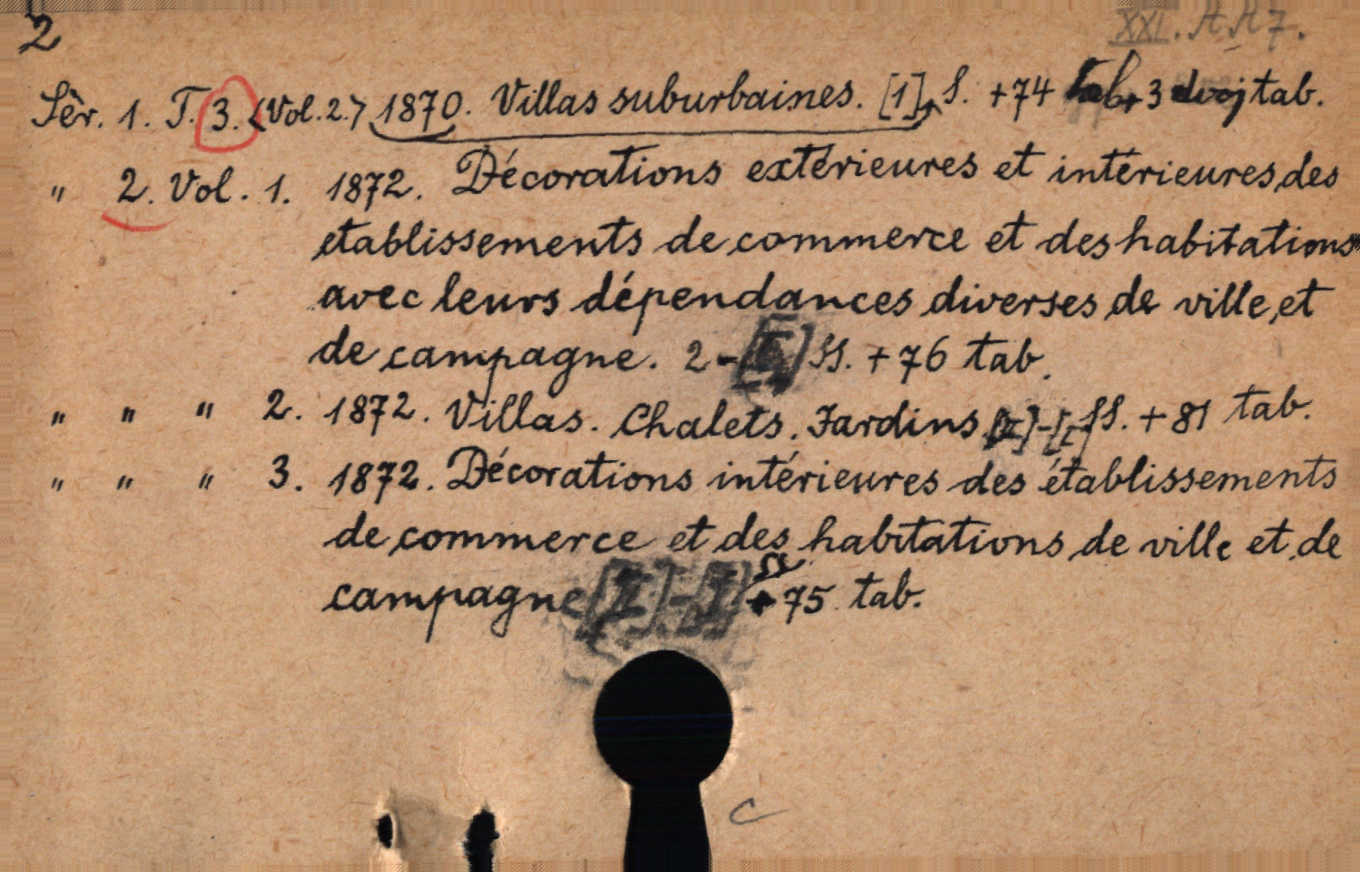 2
XXI. A A 7.
Sèr. 1. T. 3. <Vol. 2.> 1870. Villas suburbaines. [1] S. +74 tab + 3 dvoj tab.
" 2. Vol. 1. 1872. Décorations extérieures et intérieures des
etablissements de commerce et des habitations
avec leurs dépendances diverses de ville et
de campagne. 2- SS. + 76 tab.
" " " 2. 1872. Villas. Chalets. Jardins SS. + 81 tab.
" " " 3. 1872. Décorations intérieures des établissements
de commerce et des habitations de ville et de
campagne SS + 75 tab.
c